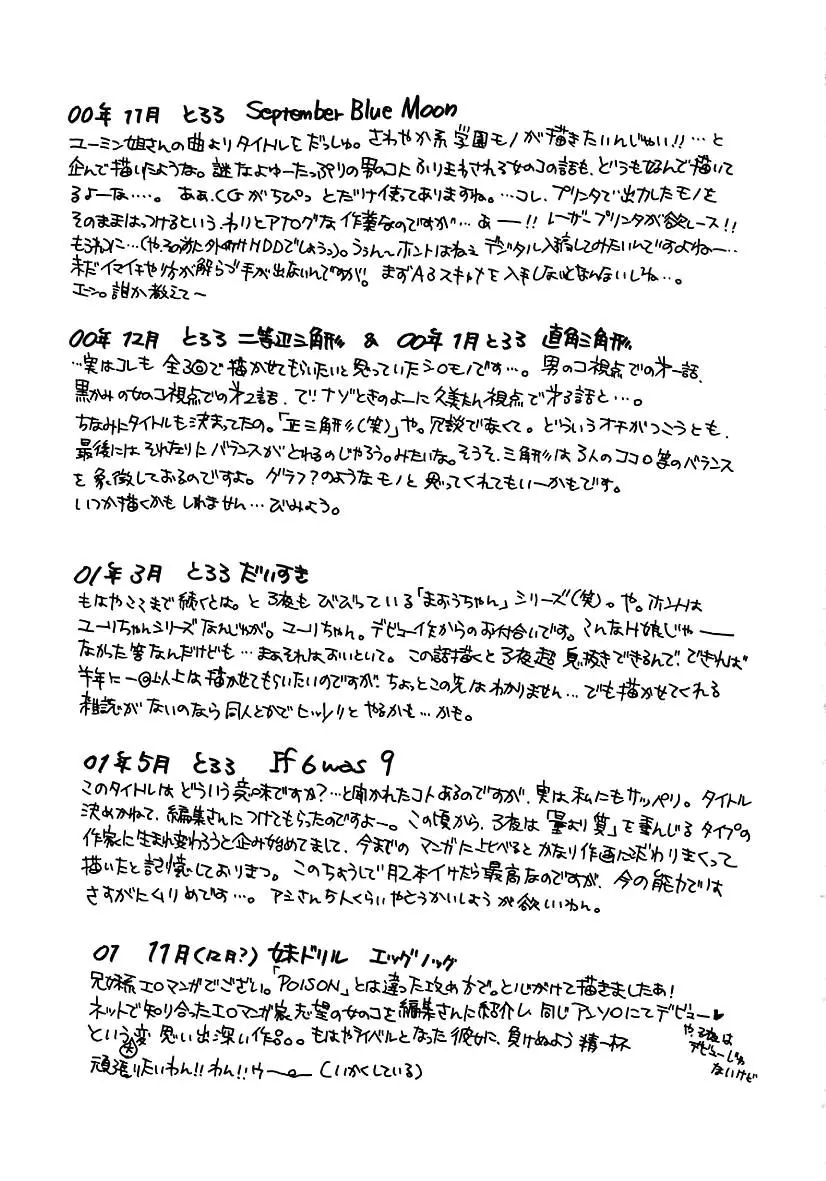 00年11月 とろろ September Blue Moon
ユーミン姐さんの曲よりタイトルをだっしゅ。さわやか系学園モノが描きたいんじゃい!!…と
企んで描いたような。謎なよゆーたっぷりの男のコにふりまわされる女のコの話も、どうもなんで描いて
るよーな…。あぁ、CGがちぴっとだけ使ってありますね。…コレ、プリンタで出力したモノを
そのままはっつけるという、わりとアナログな作業なのですが…あーー!!レーザープリンタが欲しース!!
もろれに…(や、その前に外付けHDDでしょうっ)。うぅん〜ホントはねぇデジタル入稿してみたいんですよねー…
未だイマイチやり方が解らず手が出ないんですが。まずA3スキャナを入手しないとなんないしね…。
エーン。誰か教えて〜
00年12月 とろろ 二等辺三角形 & 00年1月とろろ 直角三角形
…実はコレも全3回で描かせてもらいたいと思っていたシロモノです…。男のコ視点での第一話、
黒かみの女のコ視点での第2話、で!ナゾときのよーに久美たん視点で第3話と…。
ちなみにタイトルも決まってたの。「正三角形(笑)」や。冗談でなくて。どういうオチがつこうとも、
最後にはそれなりにバランスがとれるのじゃろう。みたいな。そうそ、三角形は3人のココロ等のバランス
を象徴しておるのですよ。グラフ?のようなモノと思ってくれてもいーかもです。
いつか描くかもしれません…びみよう。
01年3月 とろろ だいすき
もはやここまで続くとは。と3夜もびびっている「まおうちゃん」シリーズ(笑)。や。ホントは
ユーリちゃんシリーズなんじゃが。ユーリちゃん。デビュー作からのお付合いです。こんなH娘じゃ――
なかった筈なんだけども…まぁそれはおいといて。この話描くと3夜超息抜きできるんで、できれば
半年に一回以上は描かせてもらいたいのですが、ちょっとこの先はわかりません…でも描かせてくれる
雑誌がないのなら同人とかでヒッソリとやるかも…かも。
01年5月 とろろ If 6 was 9
このタイトルはどういう意味ですか?…と聞かれたコトあるのですが、実は私にもサッパリ。タイトル
決めかねて、編集さんにつけてもらったのですよー。この頃から、3夜は「量より質」を重んじるタイプの
作家に生まれ変わろうと企み始めてまして、今までのマンガに比べるとかなり作画にこだわりまくって
描いたと記憶しておりまつ。このちょうしで月2本イけたら最高なのですが、今の能力では
さすがにムリめです…。アシさん5人くらいやとうかいしょうが欲しいわん。
01 11月(12月?) 妹ドリル エッグノッグ
兄妹系エロマンガでござい。「POISON」とは違った攻め方で。と心がけて描きましたぁ!
ネットで知り合ったエロマンガ家志望の女のコを編集さんに紹介し、同じアンソにてデビュー♥
という変思い出深い作品。もはやライバルとなった彼女に、負けぬよう精一杯
頑張りたいわん!!わん!!ウ〜。(いかくしている)
や、3夜は
デビューじゃ
ないけど